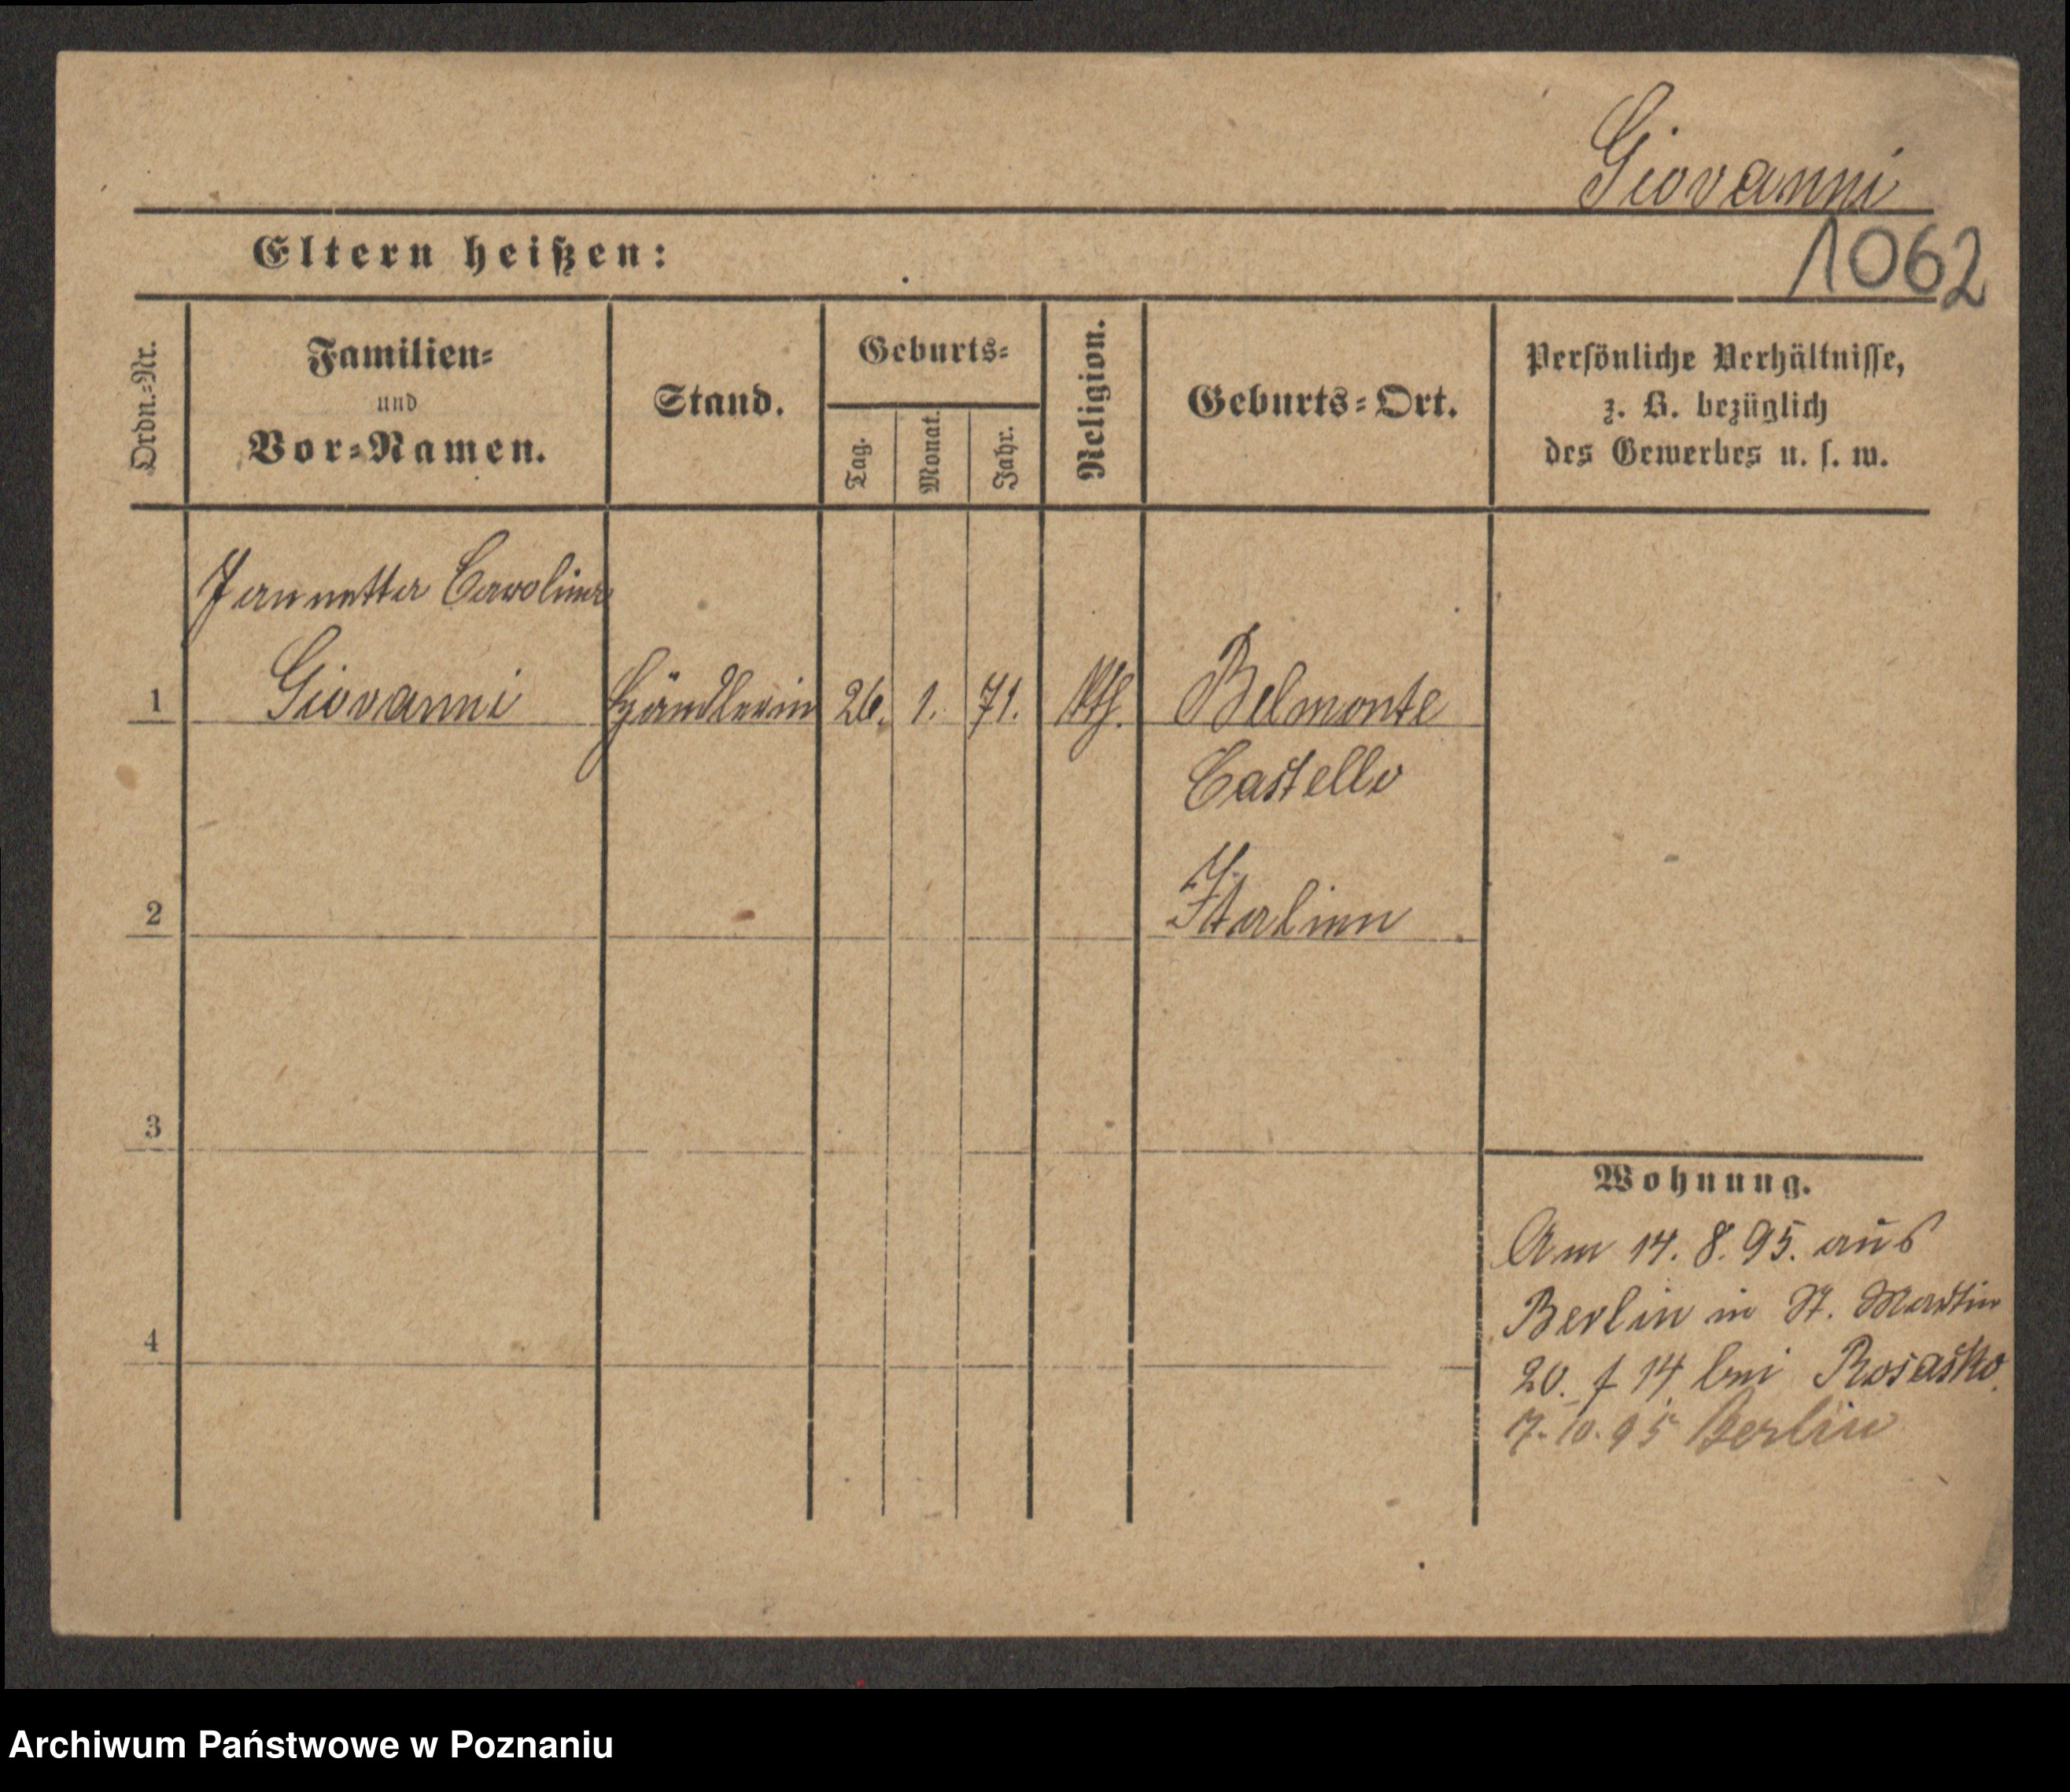 Giovanni
Eltern heißen:
1062
Ordn.=Nr.
Familien=
und
Vor=Namen.
Stand.
Geburts=
Tag.
Monat.
Jahr.
Religion.
Geburts=Ort.
Persönliche Verhältnisse,
z. B. bezüglich
des Gewerbes u. s. w.
Jannetta Carolina
1 Giovanni Händlerin 26. 1. 71. kth. Belmonte
Castello
2 Italien
3
4
Wohnung.
Am 14. 8. 95. aus
Berlin in St. Martin
20. f 14 bei Rosasko.
7. 10. 95 Berlin
Archiwum Państwowe w Poznaniu